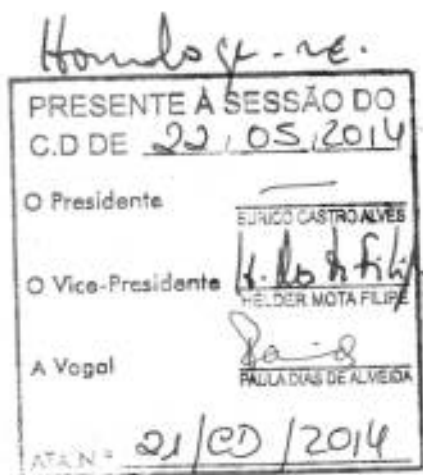 Homologe-se.
PRESENTE À SESSÃO DO
C.D DE 22/05/2014
O Presidente
EURICO CASTRO ALVES
O Vice-Presidente
HÉLDER MOTA FILIPE
A Vogal
PAULA DIAS DE ALMEIDA
ATA Nº 21/CD/2014